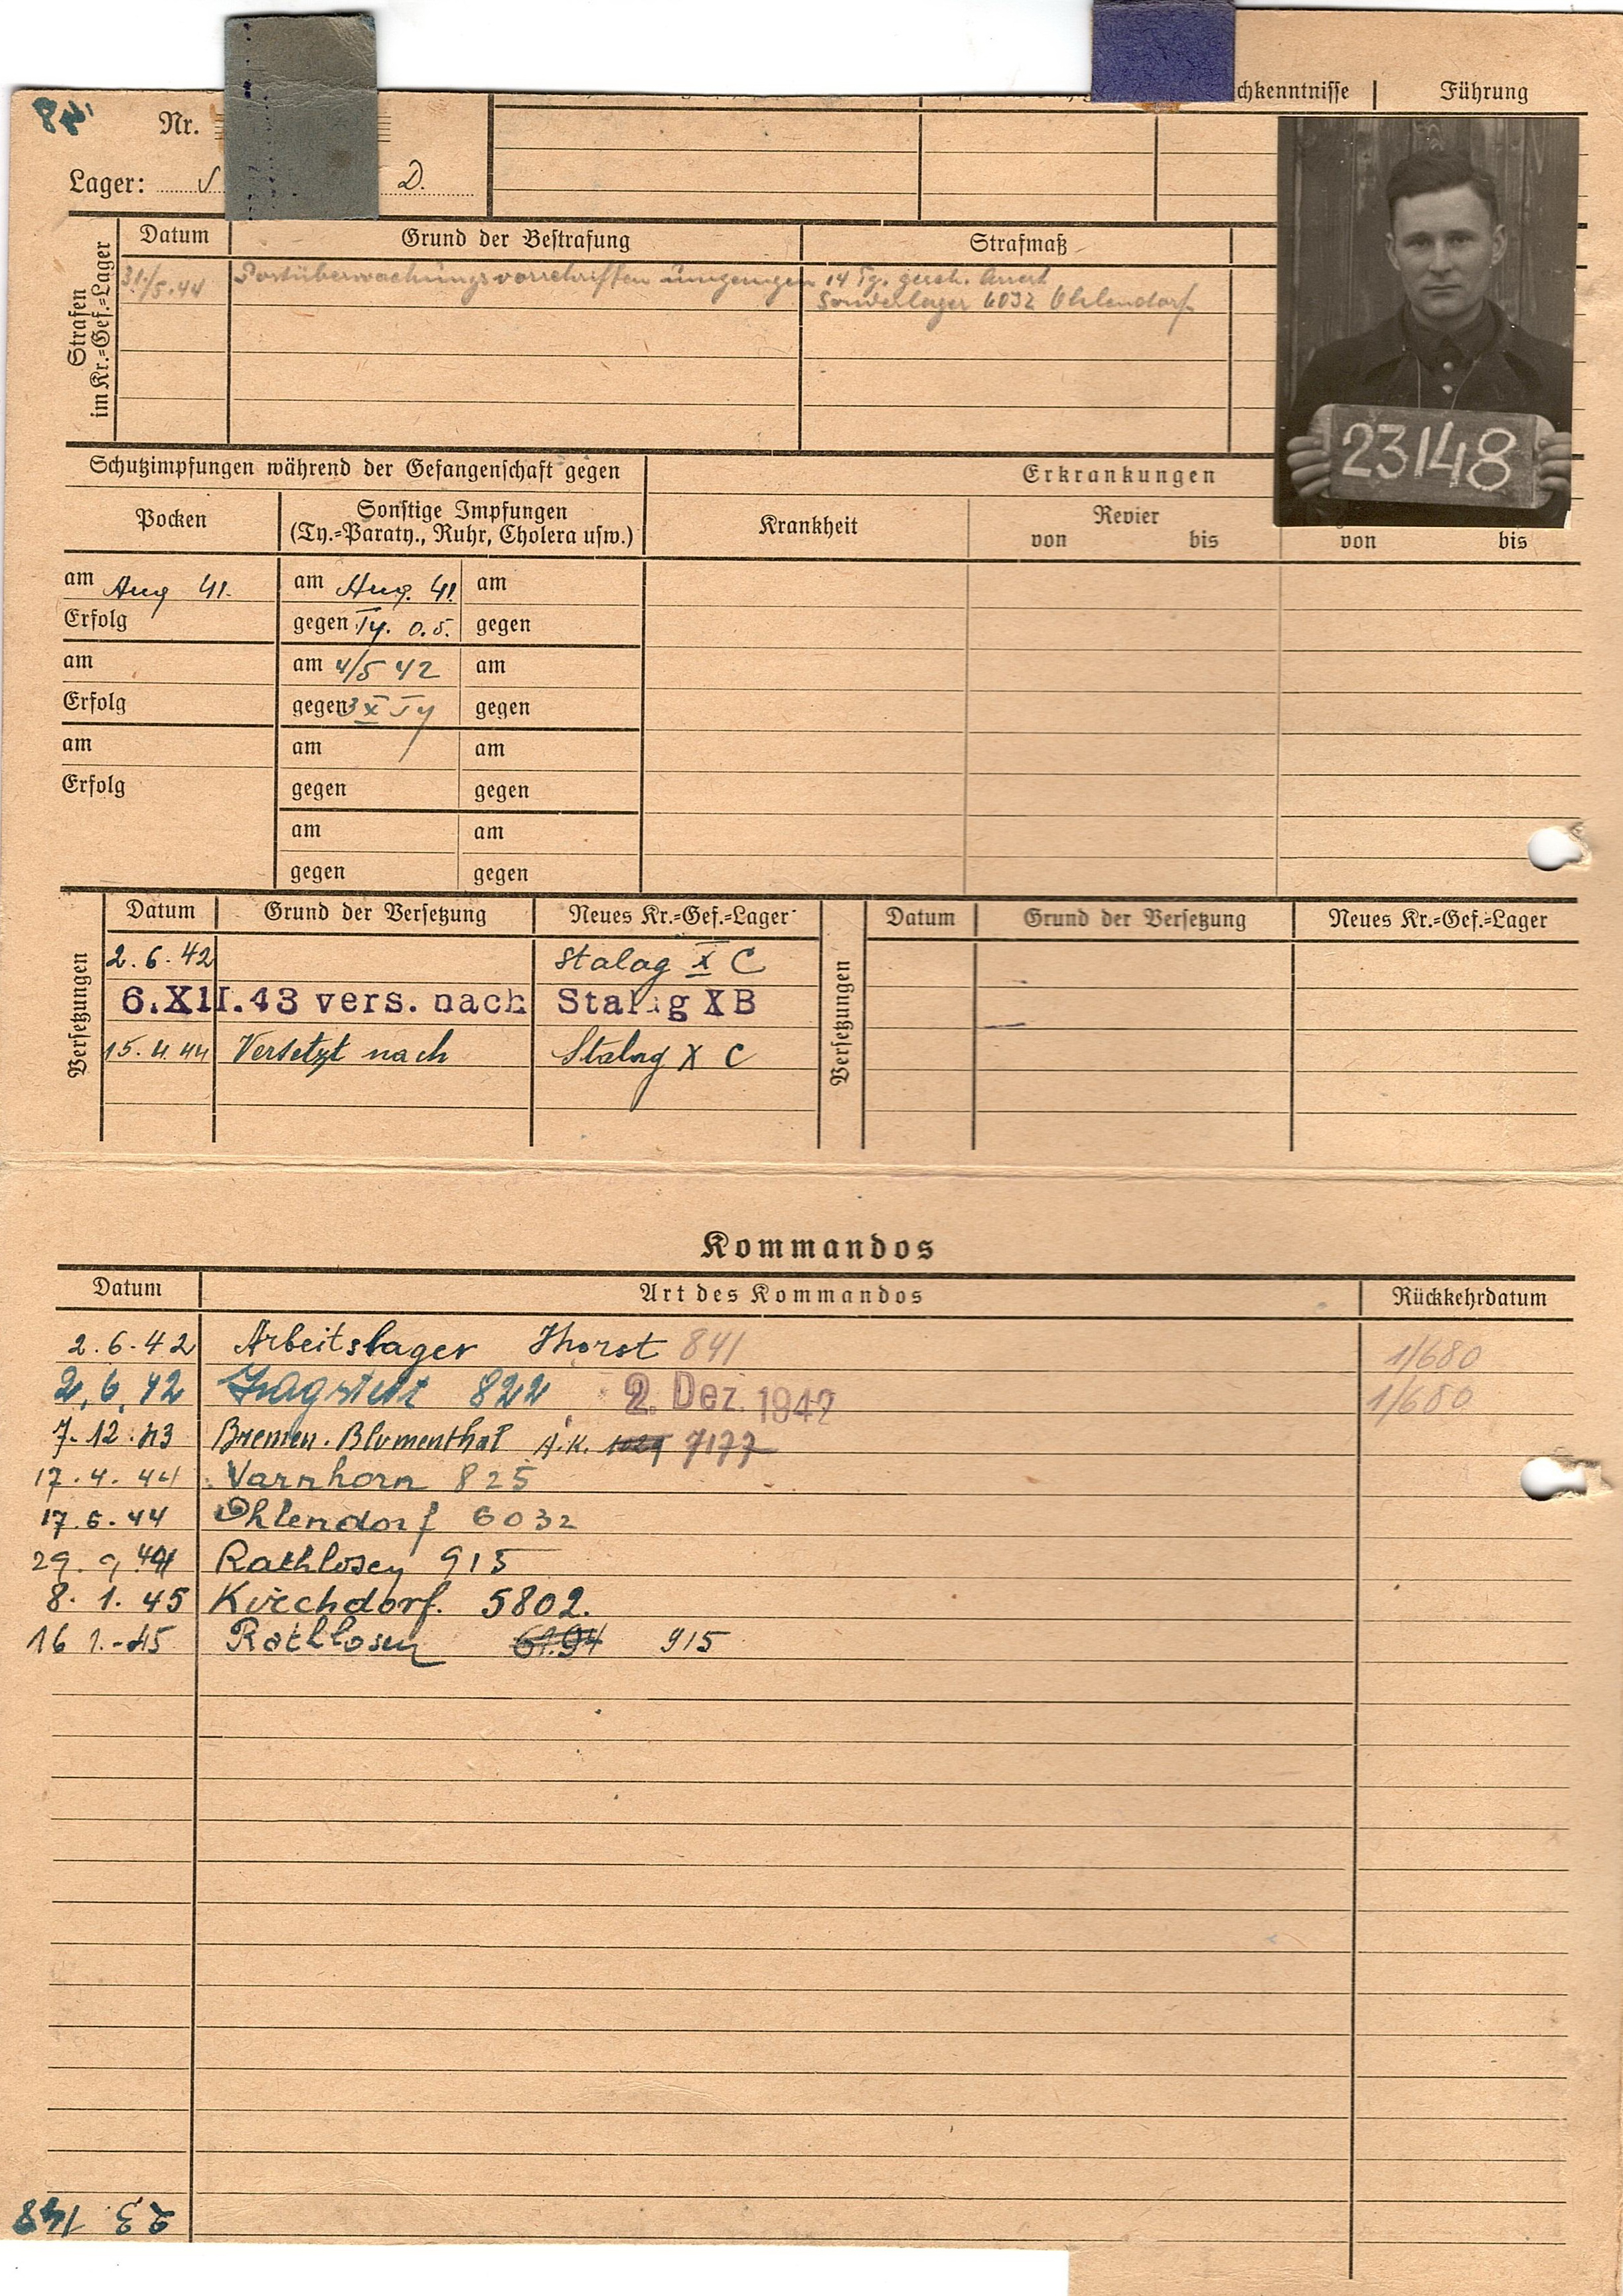 Nr.
chkenntnisse Führung
Lager: D.
Strafen
im Kr.=Gef.=Lager
Datum Grund der Bestrafung Strafmaß
31/5.44 Postüberwachungsvorschriften umgangen 14 Tg. gesch. Arrest
Sonderlager 6032 Ohlendorf
23148
Schutzimpfungen während der Gefangenschaft gegen Erkrankungen
Pocken Sonstige Impfungen Krankheit Revier
(Ty.=Paraty., Ruhr, Cholera usw.) von bis von bis
am Aug 41. am Aug. 41. am
Erfolg gegen Ty. gegen
am am 4/5 42 am
Erfolg gegen 3 x Ty gegen
am am am
Erfolg gegen gegen
am am
gegen gegen
Versetzungen
Datum Grund der Versetzung Neues Kr.=Gef.=Lager
2.6.42 Stalag X C
6.XII.43 vers. nach Stalag X B
15.4.44 Versetzt nach Stalag X C
Versetzungen
Datum Grund der Versetzung Neues Kr.=Gef.=Lager
Kommandos
Datum Art des Kommandos Rückkehrdatum
2.6.42 Arbeitslager Thorst 841 1/680
2.6.42 822 2. Dez. 1942 1/680
7.12.43 Bremen-Blumenthal A.K. 7177
17.4.44 Varnhorn 825
17.6.44 Ohlendorf 6032
29.9.44 Rathlosen 915
8.1.45 Kirchdorf. 5802.
16.1.-45 Rathlosen 915
23 148